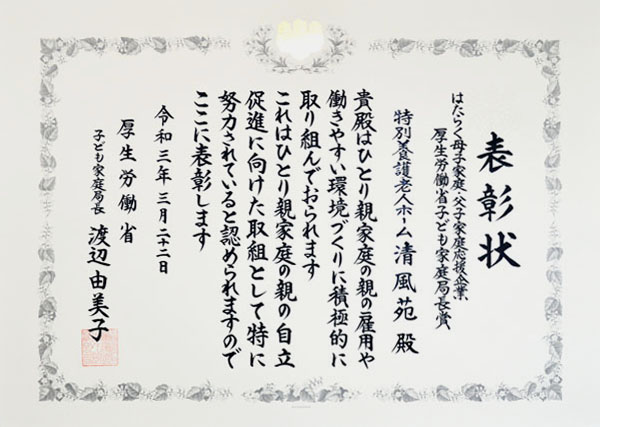 表彰状
はたらく母子家庭・父子家庭応援企業
厚生労働省子ども家庭局長賞
特別養護老人ホーム 清風苑 殿
貴殿はひとり親家庭の親の雇用や
働きやすい環境づくりに積極的に
取り組んでおられます
これはひとり親家庭の親の自立
促進に向けた取組として特に
努力されていると認められますので
ここに表彰します
令和三年三月二十二日
厚生労働省
子ども家庭局長 渡辺由美子